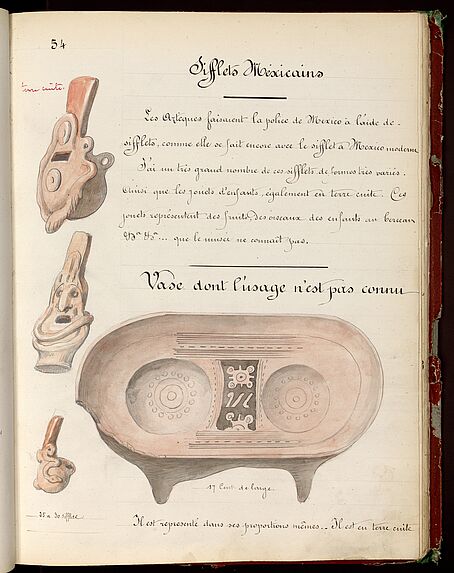 54
Sifflets Mexicains
terre cuite.
Les Aztèques faisaient la police de Mexico à l'aide de -
sifflets, comme elle se fait encore avec le sifflet à Mexico moderne
J'ai un très grand nombre de ces sifflets de formes très varies.
Ainsi que les jouets d'enfants, également en terre cuite. Ces
jouets représentent des fruits, des oiseaux des enfants au berceau
&ª &ª ... que le musée ne connait pas.
Vase dont l'usage n'est pas connu
17 Cent. de large
Il est représenté dans ses proportions mêmes.. Il est en terre cuite